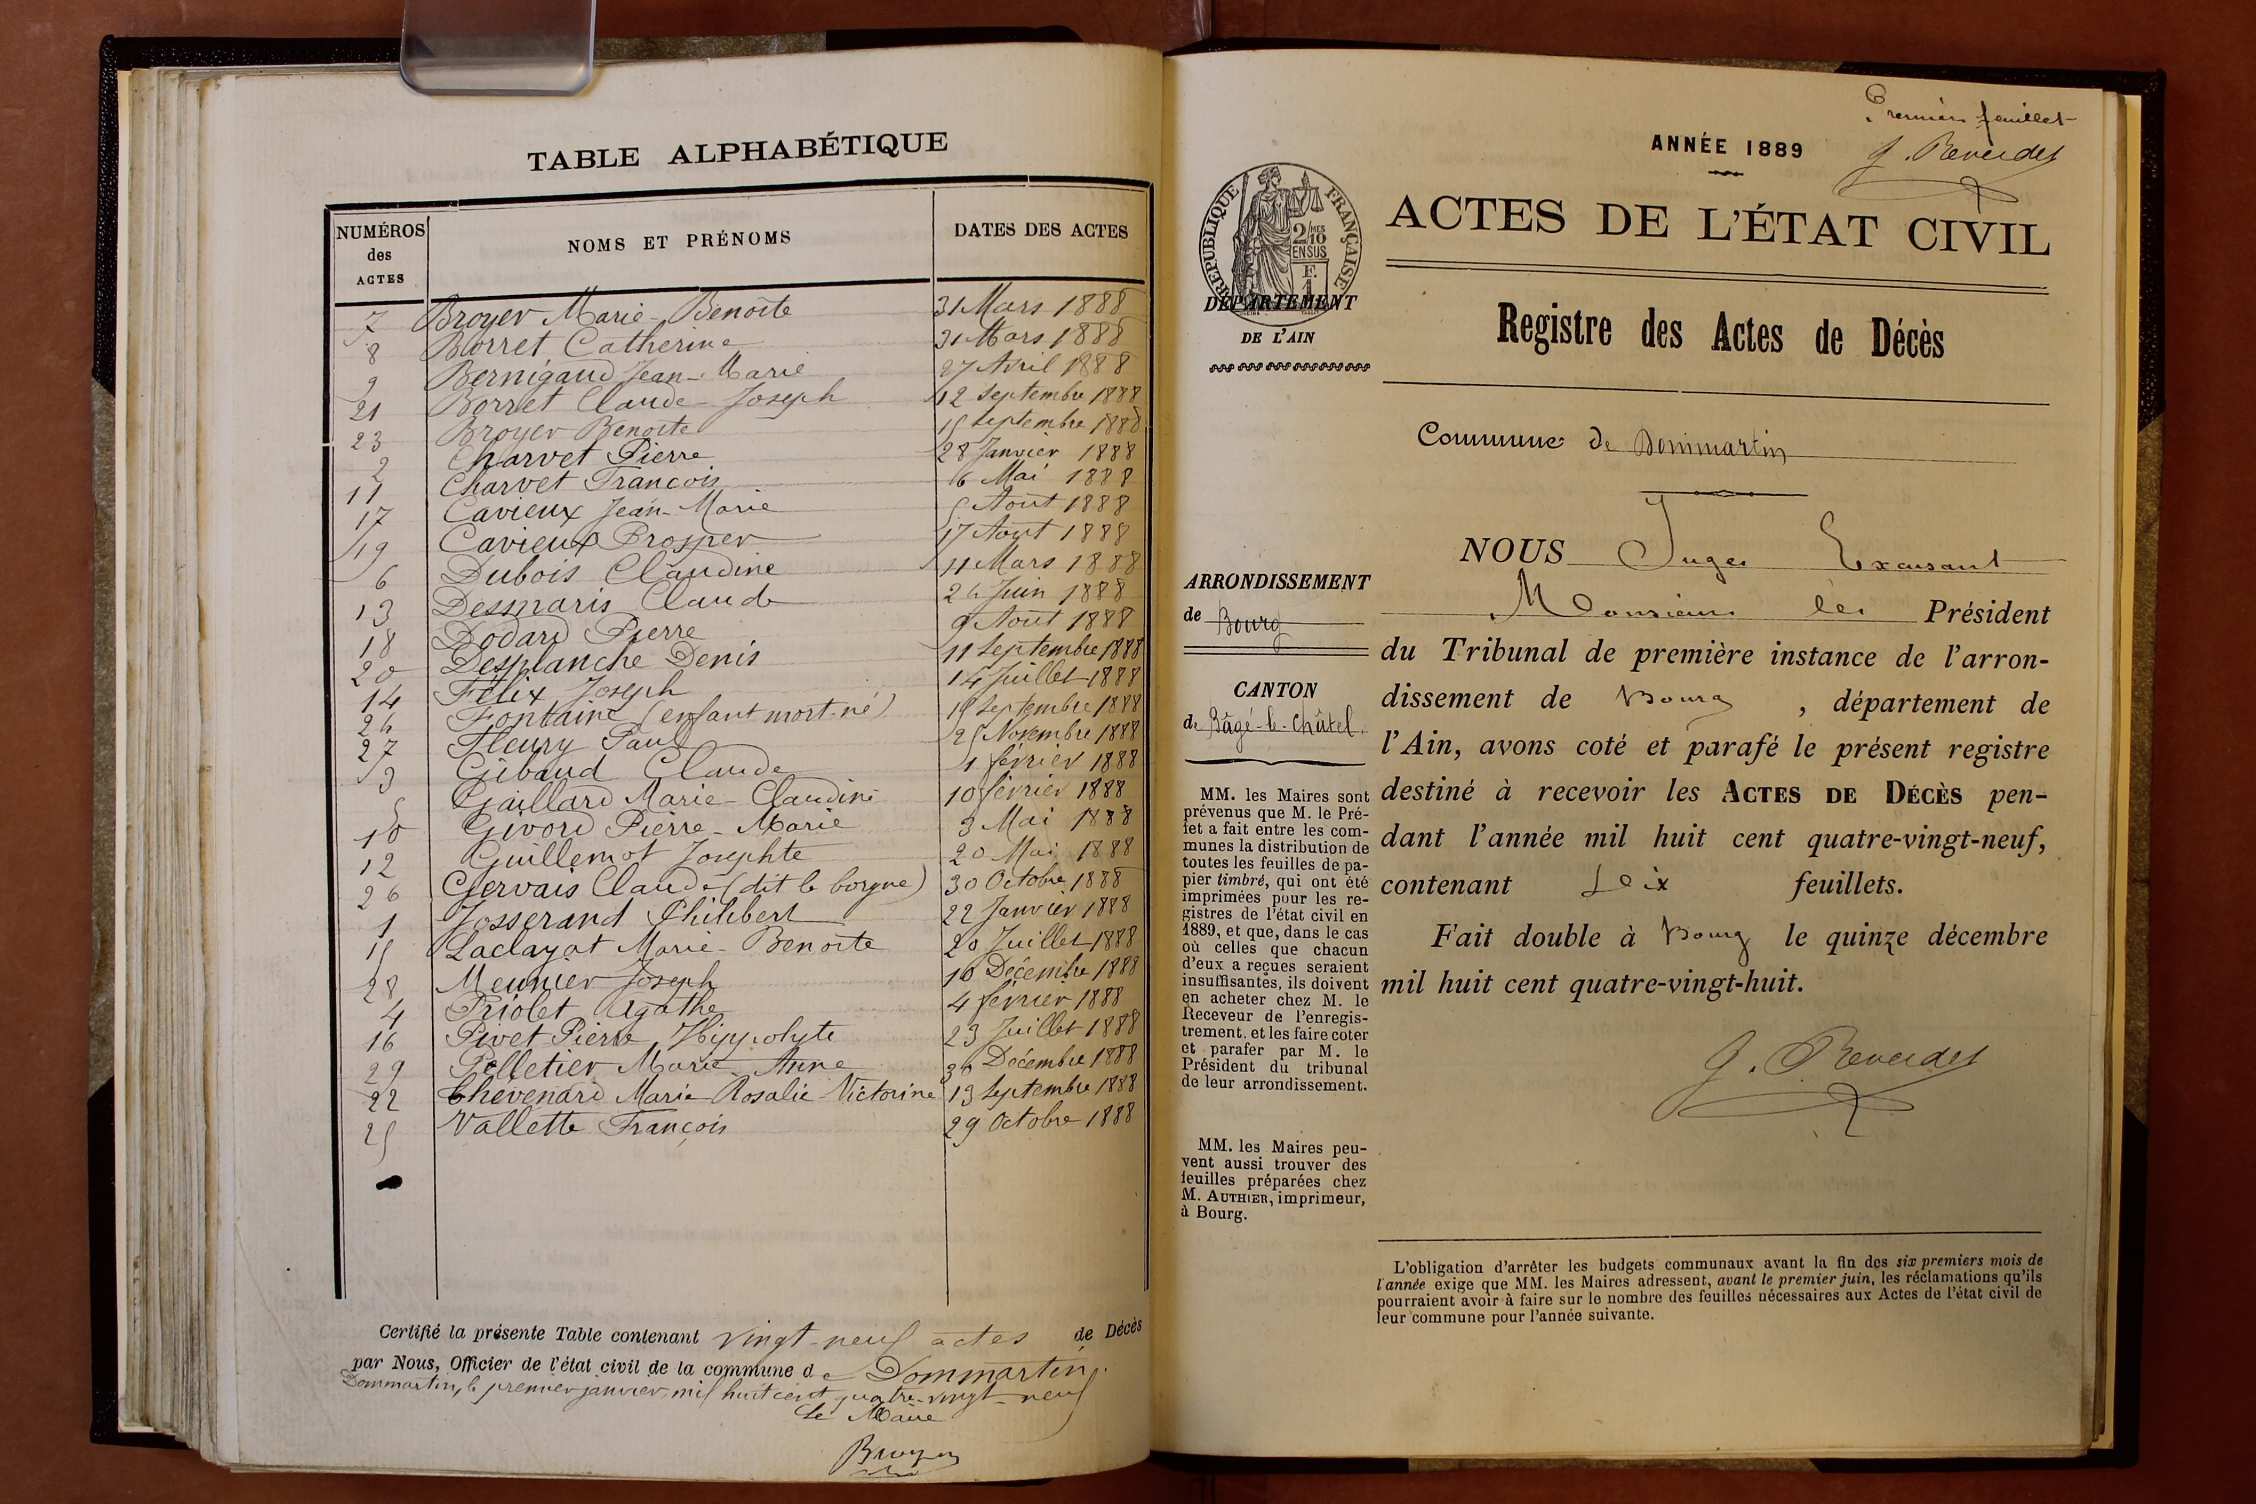 TABLE ALPHABÉTIQUE
NUMÉROS des ACTES
NOMS ET PRÉNOMS
DATES DES ACTES
7 Broyer Marie-Benoite 31 Mars 1888
8 Borret Catherine 31 Mars 1888
9 Bernigaud Jean-Marie 27 Avril 1888
21 Borret Claude-Joseph 12 Septembre 1888
23 Broyer Benoite 15 Septembre 1888
2 Charvet Pierre 28 Janvier 1888
11 Charvet François 6 Mai 1888
17 Cavieux Jean-Marie 5 Aout 1888
19 Cavieux Prosper 17 Aout 1888
6 Dubois Claudine 11 Mars 1888
13 Desmaris Claude Juin 1888
18 Dodard Pierre 9 Aout 1888
20 Desplanche Denis 11 Septembre 1888
14 Félix Joseph 14 Juillet 1888
24 Fontaine (enfant mort-né) Septembre 1888
27 Fleury Paul 25 Novembre 1888
3 Gibaud Claude 1 février 1888
5 Gaillard Marie-Claudine 10 février 1888
10 Givord Pierre-Marie 3 Mai 1888
12 Guillemot Josephte 20 Mai 1888
26 Gervais Claude (dit le borgne) 30 Octobre 1888
1 Josserand Philibert 22 Janvier 1888
15 Laclayat Marie-Benoite 20 Juillet 1888
28 Meunier Joseph 10 Décembre 1888
4 Priolet Agathe 4 février 1888
16 Pivet Pierre Hippolyte 23 Juillet 1888
29 Pelletier Marie-Anne 30 Décembre 1888
22 Chevenard Marie-Rosalie-Victorine 13 Septembre 1888
25 Vallette François 29 Octobre 1888
Certifié la présente Table contenant vingt-neuf actes de Décès
par Nous, Officier de l'état civil de la commune de Dommartin.
Dommartin, le premier janvier, mil huit cent quatre-vingt-neuf
Le Maire
Broyer
Premier feuillet
G. Reverdet
ANNÉE 1889
ACTES DE L'ÉTAT CIVIL
RÉPUBLIQUE FRANÇAISE
2/10 MES
EN SUS
F.
1
DÉPARTEMENT
DE L'AIN
Registre des Actes de Décès
Commune de Dommartin
ARRONDISSEMENT
de Bourg
CANTON
de Bâgé-le-Châtel.
MM. les Maires sont
prévenus que M. le Pré-
fet a fait entre les com-
munes la distribution de
toutes les feuilles de pa-
pier timbré, qui ont été
imprimées pour les re-
gistres de l'état civil en
1889, et que, dans le cas
où celles que chacun
d'eux a reçues seraient
insuffisantes, ils doivent
en acheter chez M. le
Receveur de l'enregis-
trement, et les faire coter
et parafer par M. le
Président du tribunal
de leur arrondissement.
MM. les Maires peu-
vent aussi trouver des
feuilles préparées chez
M. AUTHIER, imprimeur,
à Bourg.
NOUS Juge
Monsieur le Président
du Tribunal de première instance de l'arron-
dissement de Bourg, département de
l'Ain, avons coté et parafé le présent registre
destiné à recevoir les ACTES DE DÉCÈS pen-
dant l'année mil huit cent quatre-vingt-neuf,
contenant feuillets.
Fait double à Bourg le quinze décembre
mil huit cent quatre-vingt-huit.
G. Reverdet
L'obligation d'arrêter les budgets communaux avant la fin des six premiers mois de
l'année exige que MM. les Maires adressent, avant le premier juin, les réclamations qu'ils
pourraient avoir à faire sur le nombre des feuilles nécessaires aux Actes de l'état civil de
leur commune pour l'année suivante.